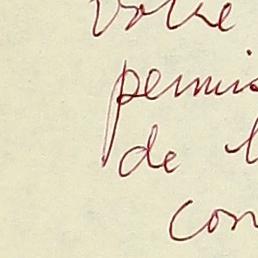 Votre
permis
de l
con